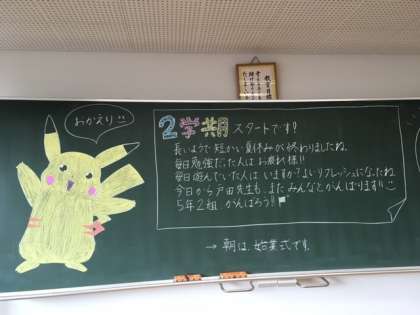 おかえり
2学期 スタートです!
長いようで短かい夏休みが終わりましたね。
毎日勉強だった人はお疲れ様!!
毎日遊んでいた人はいますか?よいリフレッシュになったね
今日から戸田先生も、またみんなとがんばります!!
5年2組 がんばろう!!
→ 朝は、始業式です。